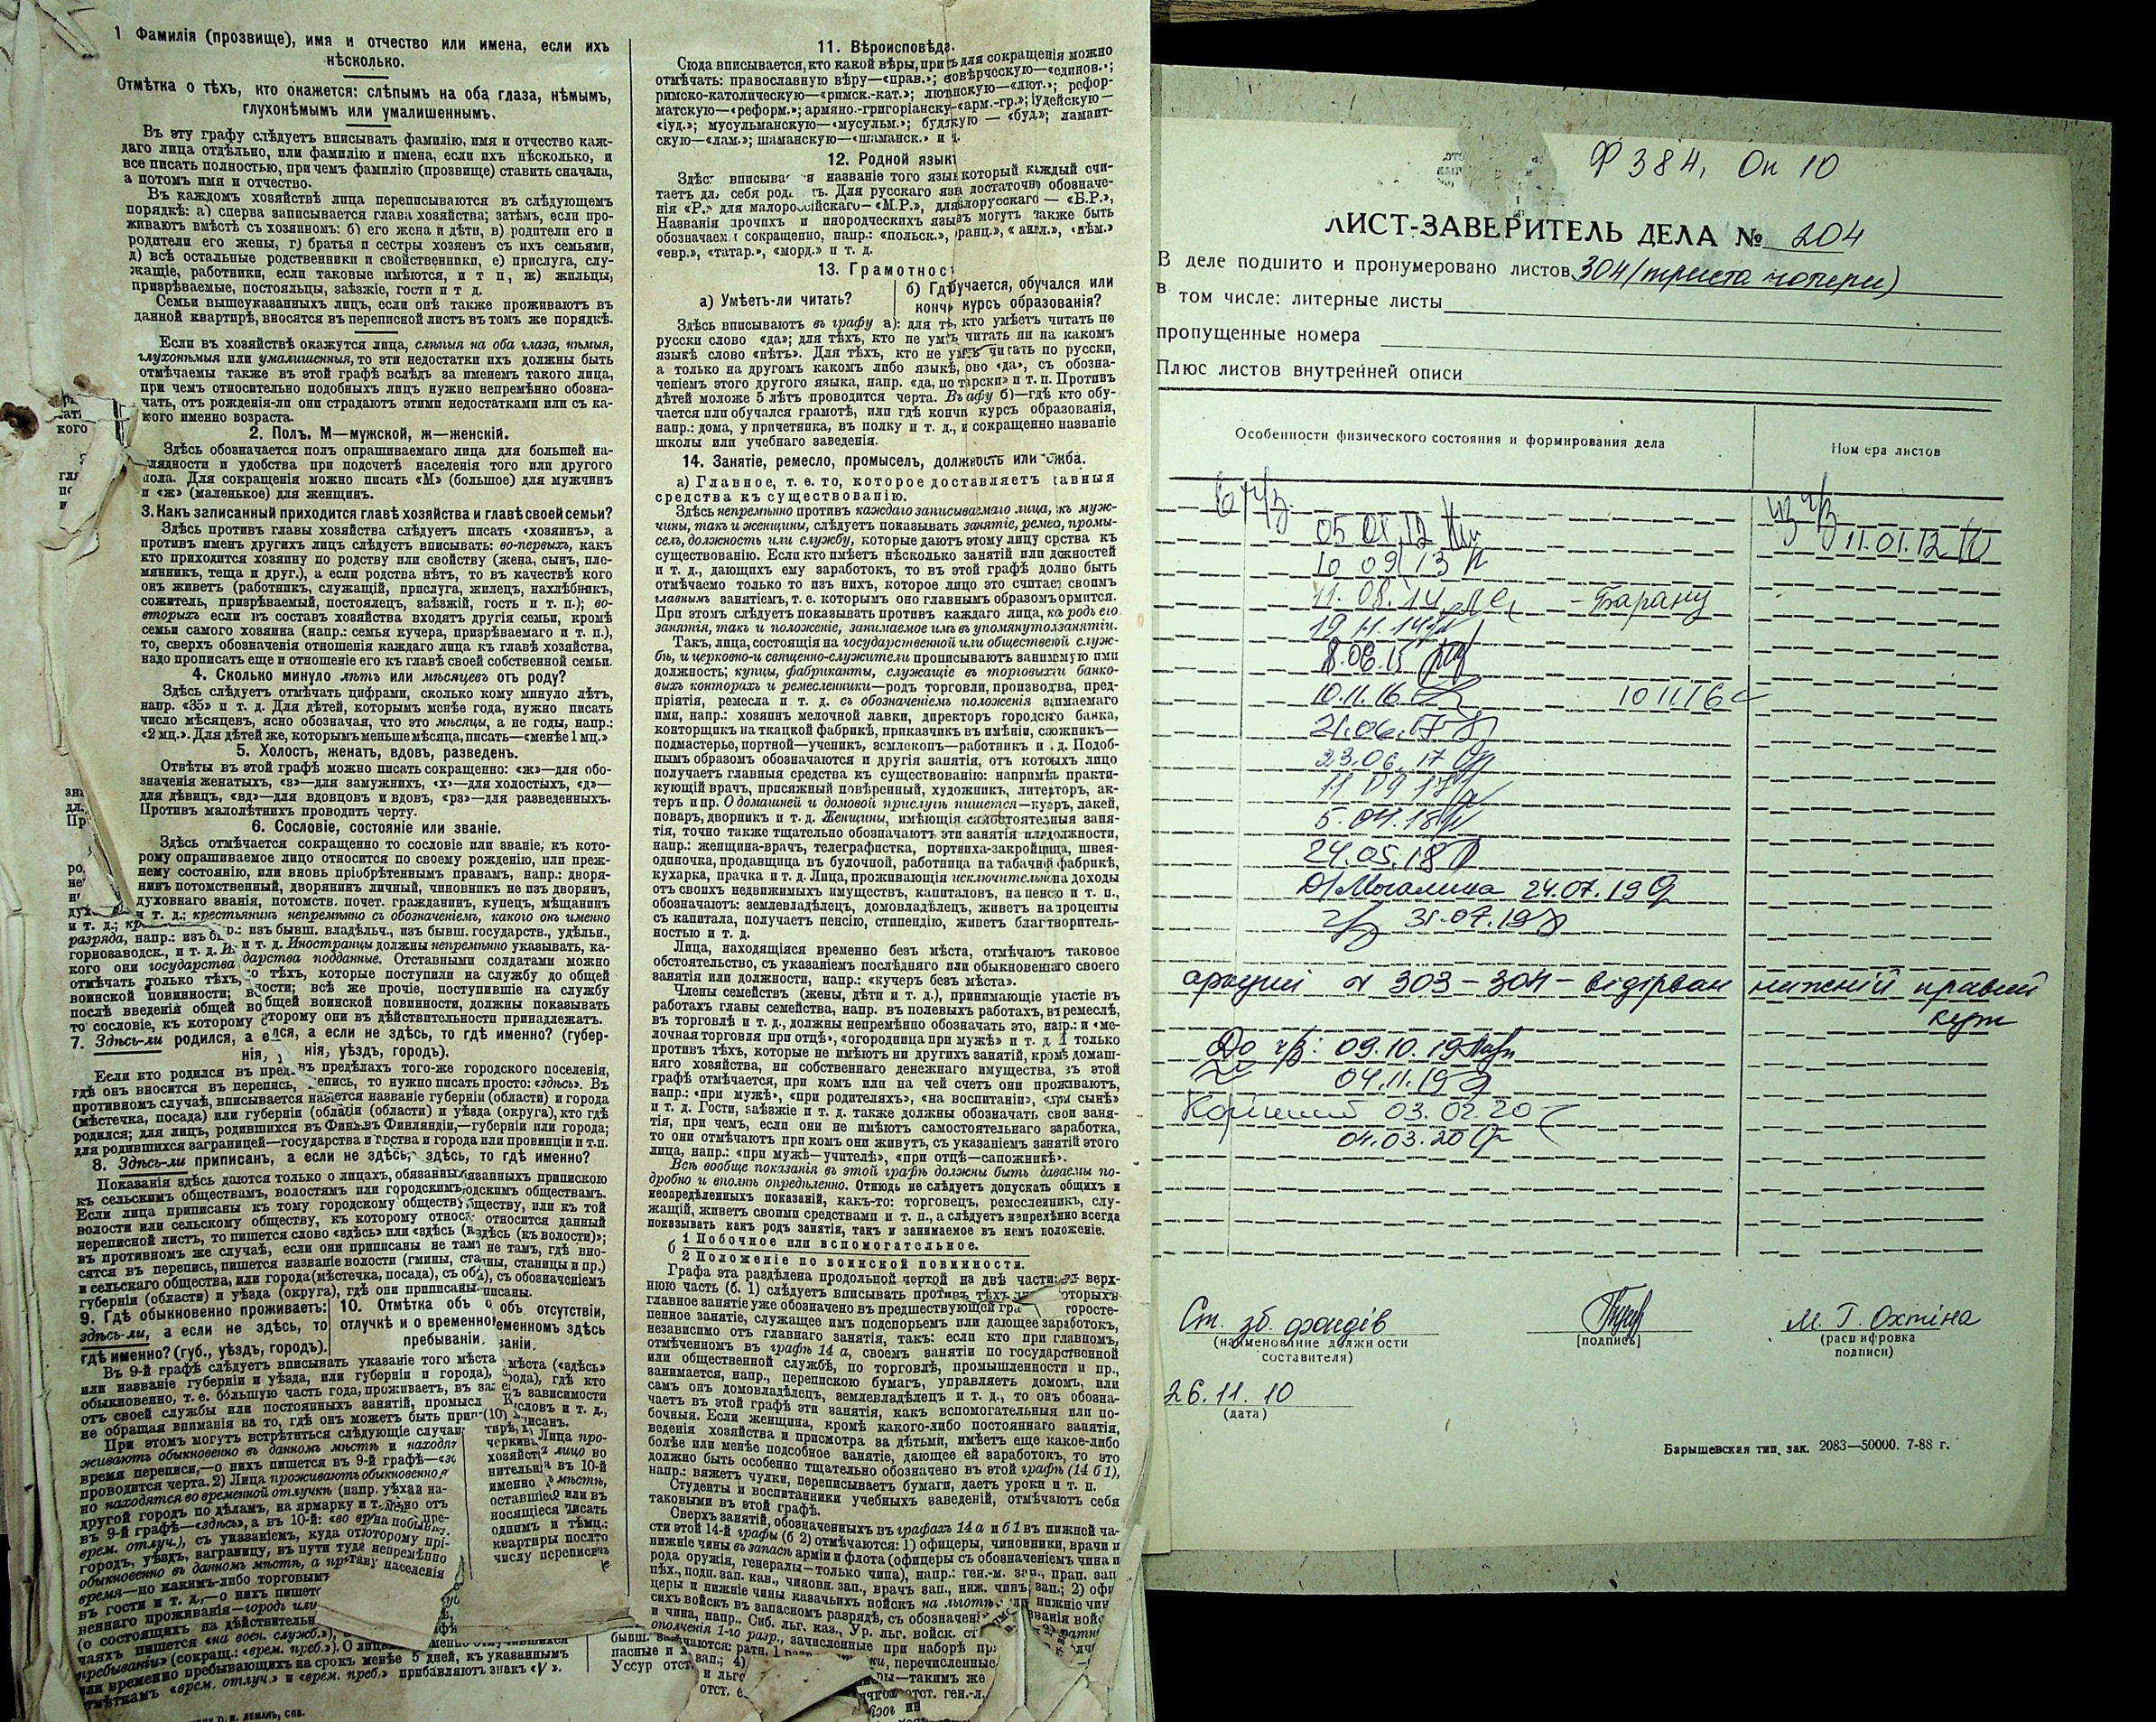 1 Фамилія (прозвище), имя и отчество или имена, если ихъ
нѣсколько.
Отмѣтка о тѣхъ, кто окажется: слѣпымъ на оба глаза, нѣмымъ,
глухонѣмымъ или умалишеннымъ.
Въ эту графу слѣдуетъ вписывать фамилію, имя и отчество каж-
даго лица отдѣльно, или фамилію и имена, если ихъ нѣсколько, и
все писать полностью, при чемъ фамилію (прозвище) ставить сначала,
а потомъ имя и отчество.
Въ каждомъ хозяйствѣ лица переписываются въ слѣдующемъ
порядкѣ: а) сперва записывается глава хозяйства; затѣмъ, если про-
живаютъ вмѣстѣ съ хозяиномъ: б) его жена и дѣти, в) родители его и
родители его жены, г) братья и сестры хозяевъ съ ихъ семьями,
д) всѣ остальные родственники и свойственники, е) прислуга, слу-
жащіе, работники, если таковые имѣются, и т п, ж) жильцы,
призрѣваемые, постояльцы, заѣзжіе, гости и т д.
Семьи вышеуказанныхъ лицъ, если онѣ также проживаютъ въ
данной квартирѣ, вносятся въ переписной листъ въ томъ же порядкѣ.
Если въ хозяйствѣ окажутся лица, слѣпыя на оба глаза, нѣмыя,
глухонѣмыя или умалишенныя, то эти недостатки ихъ должны быть
отмѣчаемы также въ этой графѣ вслѣдъ за именемъ такого лица,
при чемъ относительно подобныхъ лицъ нужно непремѣнно обозна-
чать, отъ рожденія-ли они страдаютъ этими недостатками или съ ка-
кого именно возраста.
2. Полъ. М—мужской, ж—женскій.
Здѣсь обозначается полъ опрашиваемаго лица для большей на-
глядности и удобства при подсчетѣ населенія того или другого
пола. Для сокращенія можно писать «М» (большое) для мужчинъ
и «ж» (маленькое) для женщинъ.
3. Какъ записанный приходится главѣ хозяйства и главѣ своей семьи?
Здѣсь противъ главы хозяйства слѣдуетъ писать «хозяинъ», а
противъ именъ другихъ лицъ слѣдуетъ вписывать: во-первыхъ, какъ
кто приходится хозяину по родству или свойству (жена, сынъ, пле-
мянникъ, теща и друг.), а если родства нѣтъ, то въ качествѣ кого
онъ живетъ (работникъ, служащій, прислуга, жилецъ, нахлѣбникъ,
сожитель, призрѣваемый, постоялецъ, заѣзжій, гость и т. п.); во-
вторыхъ если въ составъ хозяйства входятъ другія семьи, кромѣ
семьи самого хозяина (напр.: семья кучера, призрѣваемаго и т. п.),
то, сверхъ обозначенія отношенія каждаго лица къ главѣ хозяйства,
надо прописать еще и отношеніе его къ главѣ своей собственной семьи.
4. Сколько минуло лѣтъ или мѣсяцевъ отъ роду?
Здѣсь слѣдуетъ отмѣчать цифрами, сколько кому минуло лѣтъ,
напр. «35» и т. д. Для дѣтей, которымъ менѣе года, нужно писать
число мѣсяцевъ, ясно обозначая, что это мѣсяцы, а не годы, напр.:
«2 мц.». Для дѣтей же, которымъ меньше мѣсяца, писать—«менѣе 1 мц.»
5. Холостъ, женатъ, вдовъ, разведенъ.
Отвѣты въ этой графѣ можно писать сокращенно: «ж»—для обо-
значенія женатыхъ, «з»—для замужнихъ, «х»—для холостыхъ, «д»—
для дѣвицъ, «вд»—для вдовцовъ и вдовъ, «рз»—для разведенныхъ.
Противъ малолѣтнихъ проводить черту.
6. Сословіе, состояніе или званіе.
Здѣсь отмѣчается сокращенно то сословіе или званіе, къ кото-
рому опрашиваемое лицо относится по своему рожденію, или преж-
нему состоянію, или вновь пріобрѣтеннымъ правамъ, напр.: дворя-
нинъ потомственный, дворянинъ личный, чиновникъ не изъ дворянъ,
духовнаго званія, потомств. почет. гражданинъ, купецъ, мѣщанинъ
и т. д.; крестьянинъ непремѣнно съ обозначеніемъ, какого онъ именно
разряда, напр.: изъ бывш. владѣльч., изъ бывш. государств., удѣльн.,
горнозаводск., и т. д. Иностранцы должны непремѣнно указывать, ка-
кого они государства подданные. Отставными солдатами можно
отмѣчать только тѣхъ, которые поступили на службу до общей
воинской повинности; всѣ же прочіе, поступившіе на службу
послѣ введенія общей воинской повинности, должны показывать
то сословіе, къ которому они въ дѣйствительности принадлежатъ.
7. Здѣсь-ли родился, а если не здѣсь, то гдѣ именно? (губер-
нія, уѣздъ, городъ).
Если кто родился въ предѣлахъ того-же городского поселенія,
гдѣ онъ вносится въ перепись, то нужно писать просто: «здѣсь». Въ
противномъ случаѣ, вписывается названіе губерніи (области) и города
(мѣстечка, посада) или губерніи (области) и уѣзда (округа), кто гдѣ
родился; для лицъ, родившихся въ Финляндіи,—губерніи или города;
для родившихся заграницей—государства и города или провинціи и т.п.
8. Здѣсь-ли приписанъ, а если не здѣсь, то гдѣ именно?
Показанія здѣсь даются только о лицахъ, обязанныхъ припискою
къ сельскимъ обществамъ, волостямъ или городскимъ обществамъ.
Если лица приписаны къ тому городскому обществу, или къ той
волости или сельскому обществу, къ которому относится данный
переписной листъ, то пишется слово «здѣсь» или «здѣсь (къ волости)»;
въ противномъ же случаѣ, если они приписаны не тамъ, гдѣ вно-
сятся въ перепись, пишется названіе волости (гмины, станицы и пр.)
и сельскаго общества, или города (мѣстечка, посада), съ обозначеніемъ
губерніи (области) и уѣзда (округа), гдѣ они приписаны.
9. Гдѣ обыкновенно проживаетъ:
здѣсь-ли, а если не здѣсь, то
гдѣ именно? (губ., уѣздъ, городъ).
10. Отмѣтка объ отсутствіи,
отлучкѣ и о временномъ здѣсь
пребываніи.
Въ 9-й графѣ слѣдуетъ вписывать указаніе того мѣста («здѣсь»
или названіе губерніи и уѣзда, или губерніи и города), гдѣ кто
обыкновенно, т. е. бо́льшую часть года, проживаетъ, въ зависимости
отъ своей службы или постоянныхъ занятій, промысловъ и т. д.,
не обращая вниманія на то, гдѣ онъ можетъ быть приписанъ.
При этомъ могутъ встрѣтиться слѣдующіе случаи:
живаютъ обыкновенно въ данномъ мѣстѣ и находят
время переписи,—о нихъ пишется въ 9-й графѣ—
проводится черта. 2) Лица проживаютъ обыкновенно
но находятся во временной отлучкѣ (напр. уѣхав на-
другой городъ по дѣламъ, на ярмарку и т.
въ 9-й графѣ—«здѣсь», а въ 10-й: «во
врем. отлуч.), съ указаніемъ, куда от
городъ, уѣздъ, заграницу, въ пути туда
обыкновенно въ данномъ мѣстѣ, а
время—по какимъ-либо торговымъ
въ гости и т. д.,—о нихъ пишет
веннаго проживанія—городъ или
(о состоящихъ на дѣйствительн
чаяхъ пишется «на воен. служб.»),
пребываніи» (сокращ.: «врем. преб.»). О лица
или временно пребывающихъ на срокъ менѣе 5 дней, къ указаннымъ
отмѣткамъ «врем. отлуч.» и «врем. преб.» прибавляютъ знакъ «V».
11. Вѣроисповѣд.
Сюда вписывается, кто какой вѣры, при для сокращенія можно
отмѣчать: православную вѣру—«прав.»; единовѣрческую—«единов.»;
римско-католическую—«римск.-кат.»; лютеранскую—«лют.»; рефор-
матскую—«реформ.»; армяно-григоріанску «арм.-гр.»; іудейскую—
«іуд.»; мусульманскую—«мусульм.»; буд кую — «буд.»; ламаит-
скую—«лам.»; шаманскую—«шаманск.» и
12. Родной язык
Здѣсь вписыва я названіе того язы который каждый счи-
таетъ для себя род Для русскаго язы достаточно обозначе-
нія «Р.» для малороссійскаго—«М.Р.», для бѣлорусскаго — «Б.Р.»,
Названія прочихъ и инородческихъ язы могутъ также быть
обозначаемы сокращенно, напр.: «польск.», франц.», « англ.», «нѣм.»
«евр.», «татар.», «морд.» и т. д.
13. Грамотнос
а) Умѣетъ-ли читать?
б) Гдѣ учается, обучался или
конч курсъ образованія?
Здѣсь вписываютъ въ графу а): для тѣ, кто умѣетъ читать по
русски слово «да»; для тѣхъ, кто не умѣ читать ни на какомъ
языкѣ слово «нѣтъ». Для тѣхъ, кто не умѣ читать по русски,
а только на другомъ какомъ либо языкѣ, ово «да», съ обозна-
ченіемъ этого другого языка, напр. «да, по тарски» и т. п. Противъ
дѣтей моложе 5 лѣтъ проводится черта. Въ графу б)—гдѣ кто обу-
чается или обучался грамотѣ, или гдѣ конч курсъ образованія,
напр.: дома, у причетника, въ полку и т. д., и сокращенно названіе
школы или учебнаго заведенія.
14. Занятіе, ремесло, промыселъ, должность или служба.
а) Главное, т. е. то, которое доставляетъ главныя
средства къ существованію.
Здѣсь непремѣнно противъ каждаго записываемаго лица, къ муж-
чины, такъ и женщины, слѣдуетъ показывать занятіе, ремесло, промы-
селъ, должность или службу, которые даютъ этому лицу средства къ
существованію. Если кто имѣетъ нѣсколько занятій или должностей
и т. д., дающихъ ему заработокъ, то въ этой графѣ должно быть
отмѣчаемо только то изъ нихъ, которое лицо это считаетъ своимъ
главнымъ занятіемъ, т. е. которымъ оно главнымъ образомъ кормится.
При этомъ слѣдуетъ показывать противъ каждаго лица, какъ родъ его
занятія, такъ и положеніе, занимаемое имъ въ упомянутомъ занятіи.
Такъ, лица, состоящія на государственной или общественной служ-
бѣ, и церковно-и священно-служители прописываютъ занимаемую ими
должность; купцы, фабриканты, служащіе въ торговыхъ и банко-
выхъ конторахъ и ремесленники—родъ торговли, производства, пред-
пріятія, ремесла и т. д. съ обозначеніемъ положенія занимаемаго
ими, напр.: хозяинъ мелочной лавки, директоръ городского банка,
конторщикъ на ткацкой фабрикѣ, приказчикъ въ имѣніи, сапожникъ—
подмастерье, портной—ученикъ, землекопъ—работникъ и т. д. Подоб-
нымъ образомъ обозначаются и другія занятія, отъ которыхъ лицо
получаетъ главныя средства къ существованію: напримѣръ практи-
кующій врачъ, присяжный повѣренный, художникъ, литераторъ, ак-
теръ и пр. О домашней и домовой прислугѣ пишется—кучеръ, лакей,
поваръ, дворникъ и т. д. Женщины, имѣющія самостоятельныя заня-
тія, точно также тщательно обозначаютъ эти занятія или должности,
напр.: женщина-врачъ, телеграфистка, портниха-закройщица, швея-
одиночка, продавщица въ булочной, работница на табачной фабрикѣ,
кухарка, прачка и т. д. Лица, проживающія исключительно на доходы
отъ своихъ недвижимыхъ имуществъ, капиталовъ, на пенсію и т. п.,
обозначаютъ: землевладѣлецъ, домовладѣлецъ, живетъ на проценты
съ капитала, получаетъ пенсію, стипендію, живетъ благотворитель-
ностью и т. д.
Лица, находящіяся временно безъ мѣста, отмѣчаютъ таковое
обстоятельство, съ указаніемъ послѣдняго или обыкновеннаго своего
занятія или должности, напр.: «кучеръ безъ мѣста».
Члены семействъ (жены, дѣти и т. д.), принимающіе участіе въ
работахъ главы семейства, напр. въ полевыхъ работахъ, въ ремеслѣ,
въ торговлѣ и т. д., должны непремѣнно обозначать это, напр.: и «ме-
лочная торговля при отцѣ», «огородница при мужѣ» и т. д. только
противъ тѣхъ, которые не имѣютъ ни другихъ занятій, кромѣ домаш-
няго хозяйства, ни собственнаго денежнаго имущества, въ этой
графѣ отмѣчается, при комъ или на чей счетъ они проживаютъ,
напр.: «при мужѣ», «при родителяхъ», «на воспитаніи», «при сынѣ»
и т. д. Гости, заѣзжіе и т. д. также должны обозначать свои заня-
тія, при чемъ, если они не имѣютъ самостоятельнаго заработка,
то они отмѣчаютъ при комъ они живутъ, съ указаніемъ занятій этого
лица, напр.: «при мужѣ—учителѣ», «при отцѣ—сапожникѣ».
Всѣ вообще показанія въ этой графѣ должны быть даваемы по-
дробно и вполнѣ опредѣленно. Отнюдь не слѣдуетъ допускать общихъ и
неопредѣленныхъ показаній, какъ-то: торговецъ, ремесленникъ, слу-
жащій, живетъ своими средствами и т. п., а слѣдуетъ непремѣнно всегда
показывать какъ родъ занятія, такъ и занимаемое въ немъ положеніе.
б 1 Побочное или вспомогательное.
2 Положеніе по воинской повинности.
Графа эта раздѣлена продольной чертой на двѣ части: въ верх-
нюю часть (б. 1) слѣдуетъ вписывать противъ тѣхъ оторыхъ
главное занятіе уже обозначено въ предшествующей гра горосте-
пенное занятіе, служащее имъ подспорьемъ или дающее заработокъ,
независимо отъ главнаго занятія, такъ: если кто при главномъ,
отмѣченномъ въ графѣ 14 а, своемъ занятіи по государственной
или общественной службѣ, по торговлѣ, промышленности и пр.,
занимается, напр., перепискою бумагъ, управляетъ домомъ, или
самъ онъ домовладѣлецъ, землевладѣлецъ и т. д., то онъ обозна-
чаетъ въ этой графѣ эти занятія, какъ вспомогательныя или по-
бочныя. Если женщина, кромѣ какого-либо постояннаго занятія,
веденія хозяйства и присмотра за дѣтьми, имѣетъ еще какое-либо
болѣе или менѣе подсобное занятіе, дающее ей заработокъ, то это
должно быть особенно тщательно обозначено въ этой графѣ (14 б 1),
напр.: вяжетъ чулки, переписываетъ бумаги, даетъ уроки и т. п.
Студенты и воспитанники учебныхъ заведеній, отмѣчаютъ себя
таковыми въ этой графѣ.
Сверхъ занятій, обозначенныхъ въ графахъ 14 а и б 1 въ нижней ча-
сти этой 14-й графы (б 2) отмѣчаются: 1) офицеры, чиновники, врачи и
нижніе чины въ запасѣ арміи и флота (офицеры съ обозначеніемъ чина и
рода оружія, генералы—только чина), напр.: ген.-м. зап., прап. зап
пѣх., подп. зап. кав., чиновн. зап., врачъ зап., ниж. чинъ зап.; 2) офи
церы и нижніе чины казачьихъ войскъ на льготѣ
сихъ войскъ въ запасномъ разрядѣ, съ обозначен
и чина, напр.. Сиб. льг. каз., Ур. льг. войск. ст
ополченія 1-го разр., зачисленные при наборѣ
Ф 384, Оп 10
ЛИСТ-ЗАВЕРИТЕЛЬ ДЕЛА № 204
В деле подшито и пронумеровано листов 304 (триста чотири)
в том числе: литерные листы
пропущенные номера
Плюс листов внутренней описи
Особенности физического состояния и формирования дела
Номера листов
В ч/з
из ч/з
05 01.12
11.01.12
10 09 13
11. 08. 14 - Барану
19.11.14
8.06.15
10.11.16 10 11 16
21.06.17
23.06.17
11 09 17
5.04.18
24.05.18
24.07.19
ч/з 31.07.19
аркуші № 303-304 - відірван нижній правий
кут
До ч/з: 09.10.19
04.11.19
03.02.20
04.03.20
Ст. зб. фондів
М. Г. Охтіна
(наименование должности
составителя)
[подпись]
(расшифровка
подписи)
26.11.10
(дата)
Барышевская тип. зак. 2083—50000. 7-88 г.